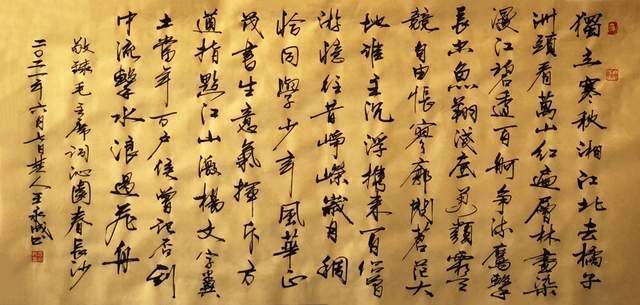 獨立寒秋湘江北去橘子
洲頭看萬山紅遍層林盡染
漫江碧透百舸爭流鷹擊
長空魚翔淺底万類霜天
競自由悵寥廓問蒼茫大
地誰主沉浮攜來百侶曾
游憶往昔崢嶸歲月稠
恰同學少年風華正
茂書生意氣揮斥方
遒指點江山激揚文字糞
土當年万户侯曾記否到
中流擊水浪遏飛舟
敬錄毛主席詞沁園春長沙
二〇二一年六月七日楚人王永